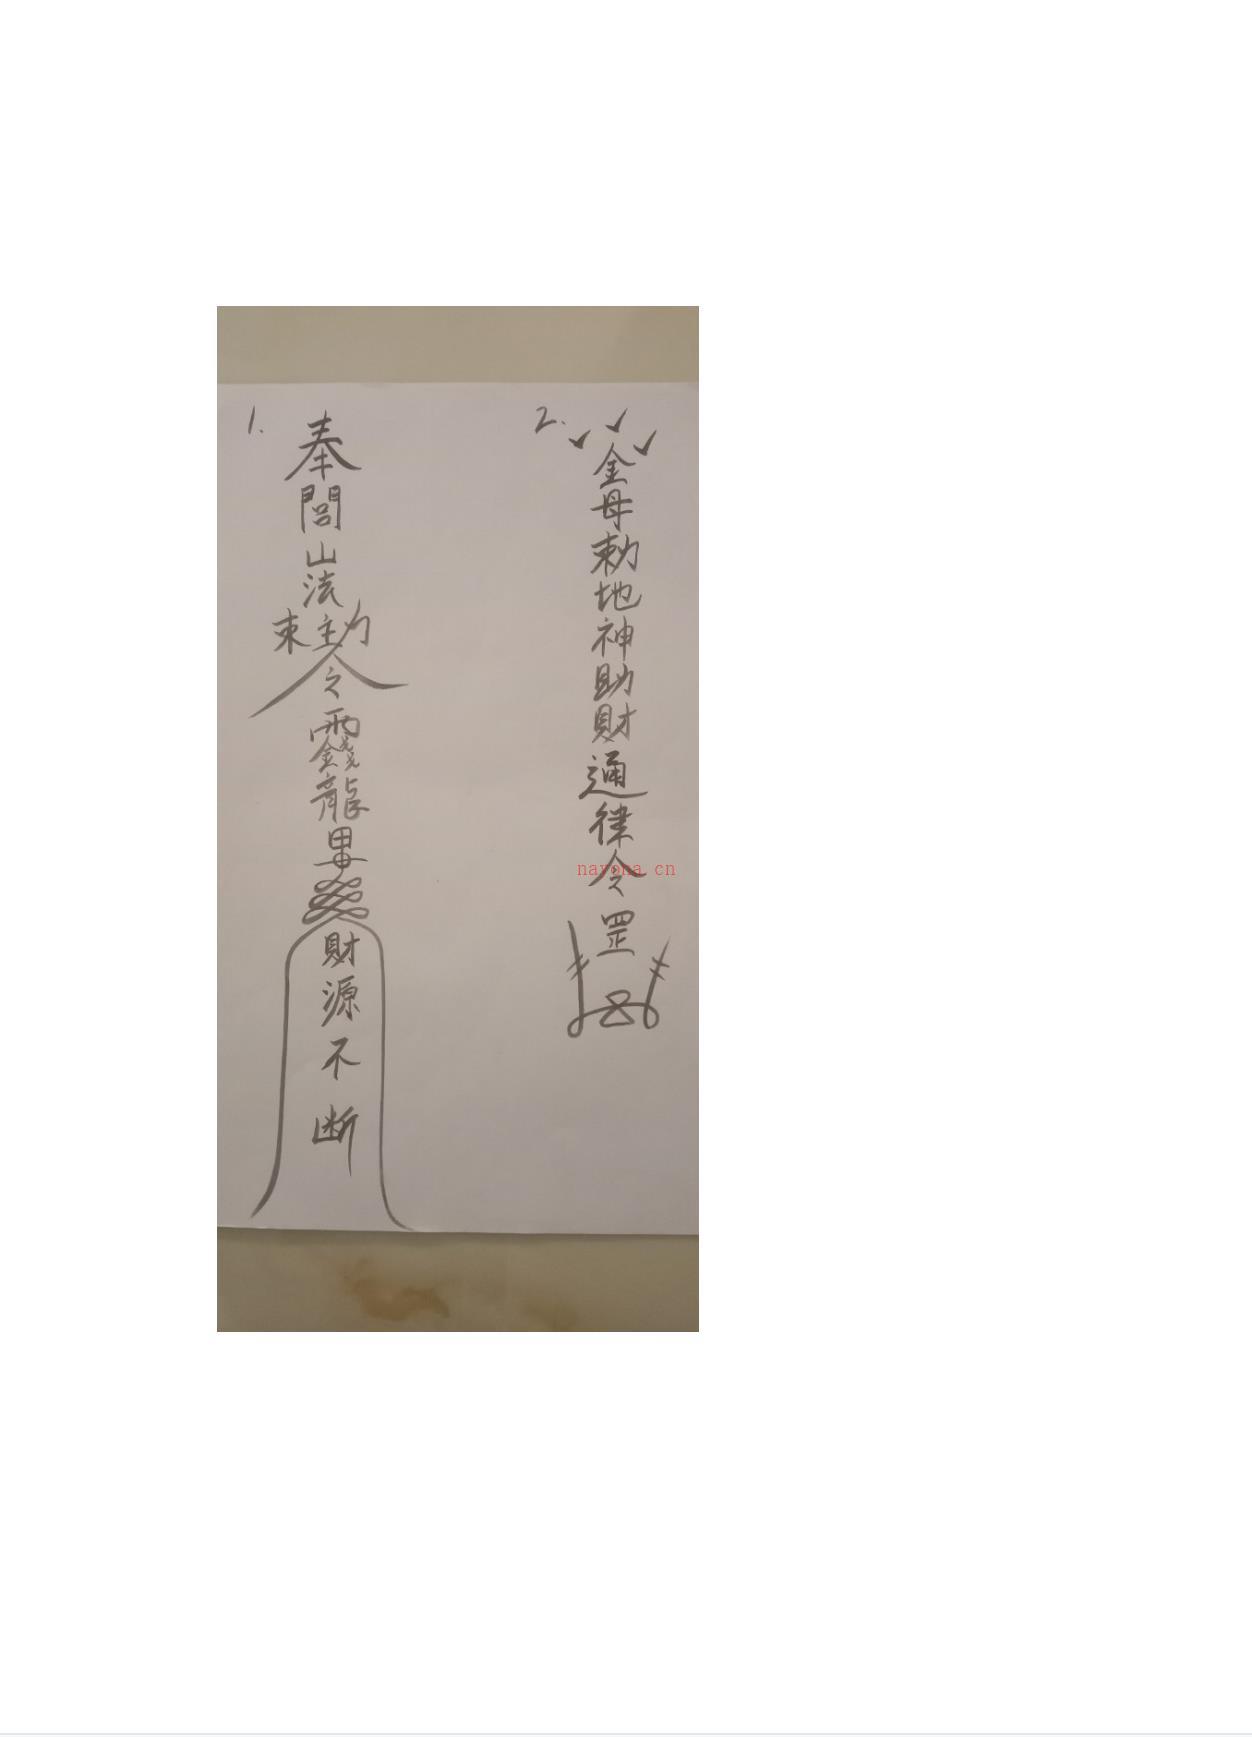 1.
奉閭山法主敕令
財源不断
2.
金母勅地神助財通律令罡
nayona.cn